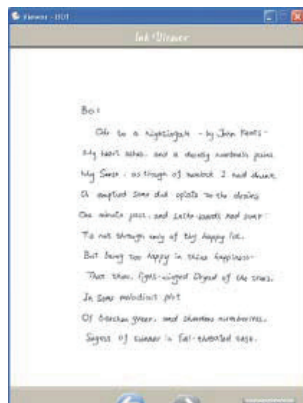 Viewer - 
Ink Viewer
Ode to a Nightingale - by John Keats -
My heart aches, and a drowsy numbness pains
My Sense, as though of hemlock I had drunk
Or emptied some dull opiate to the drains
One minute past, and Lethe-wards had sunk
Tis not through envy of thy happy lot,
But being too happy in thine happiness-
That thou, light-winged Dryad of the trees,
In Some melodious plot
Of beechen green, and shadows numberless,
Singest of summer in full-throated ease.